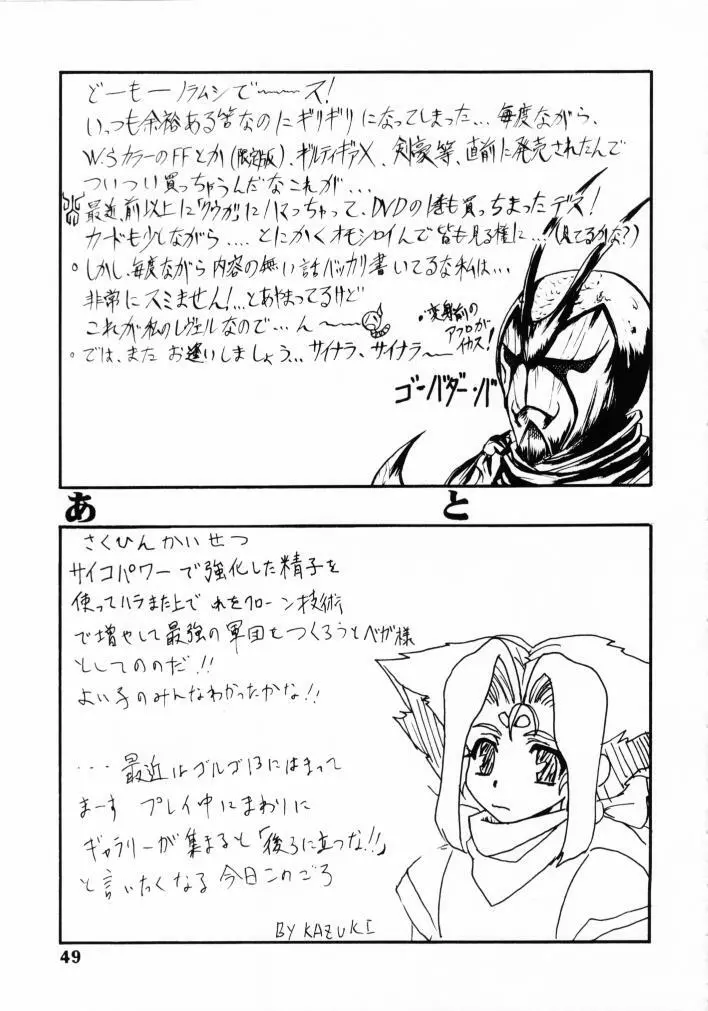 どーもーノラムシでーーース!
いっつも余裕ある筈なのにギリギリになってしまった...毎度ながら、
W.SカラーのFFとか(限定版)、ギルティギアX、剣豪等、直前に発売されたんで
ついつい買っちゃうんだなこれが...
最近、前以上に「クウガ」にハマっちゃって、DVDの1巻も買っちまったデス!
カードも少しながら....とにかくオモシロイんで皆も見る様に...(見てるかな?)
しかし、毎度ながら内容の無い話バッカリ書いてるな私は...
非常にスミません!...とあやまってるけど
これが私のレヴェルなので...ん〜〜
では、また お逢いしましょう...サイナラ、サイナラ〜
変身前の
アフロが
イカス!
ゴ・バダー・バ
あ と
さくひんかいせつ
サイコパワーで強化した精子を
使ってハラませた上で それをクローン技術
で増やして最強の軍団をつくろうとベガ様
としてのだ!!
よい子のみんなわかったかな!!
...最近はゴルゴ13にはまって
まーす プレイ中にまわりに
ギャラリーが集まると「後ろに立つな!!」
と言いたくなる今日このごろ
BY KAZUKI
49